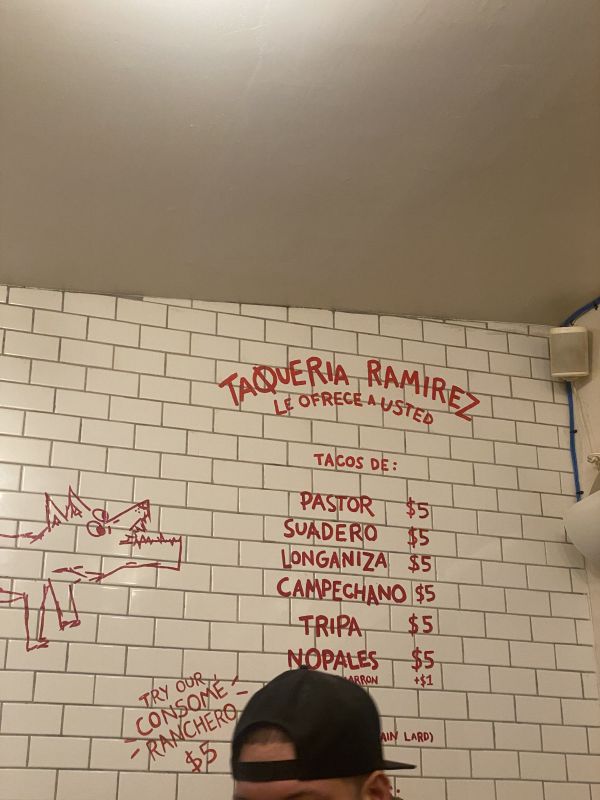 TAQUERIA RAMIREZ
LE OFRECE A USTED
TACOS DE:
PASTOR $5
SUADERO $5
LONGANIZA $5
CAMPECHANO $5
TRIPA $5
NOPALES $5
+$1
TRY OUR
CONSOMÉ
RANCHERO
$5
LARD)